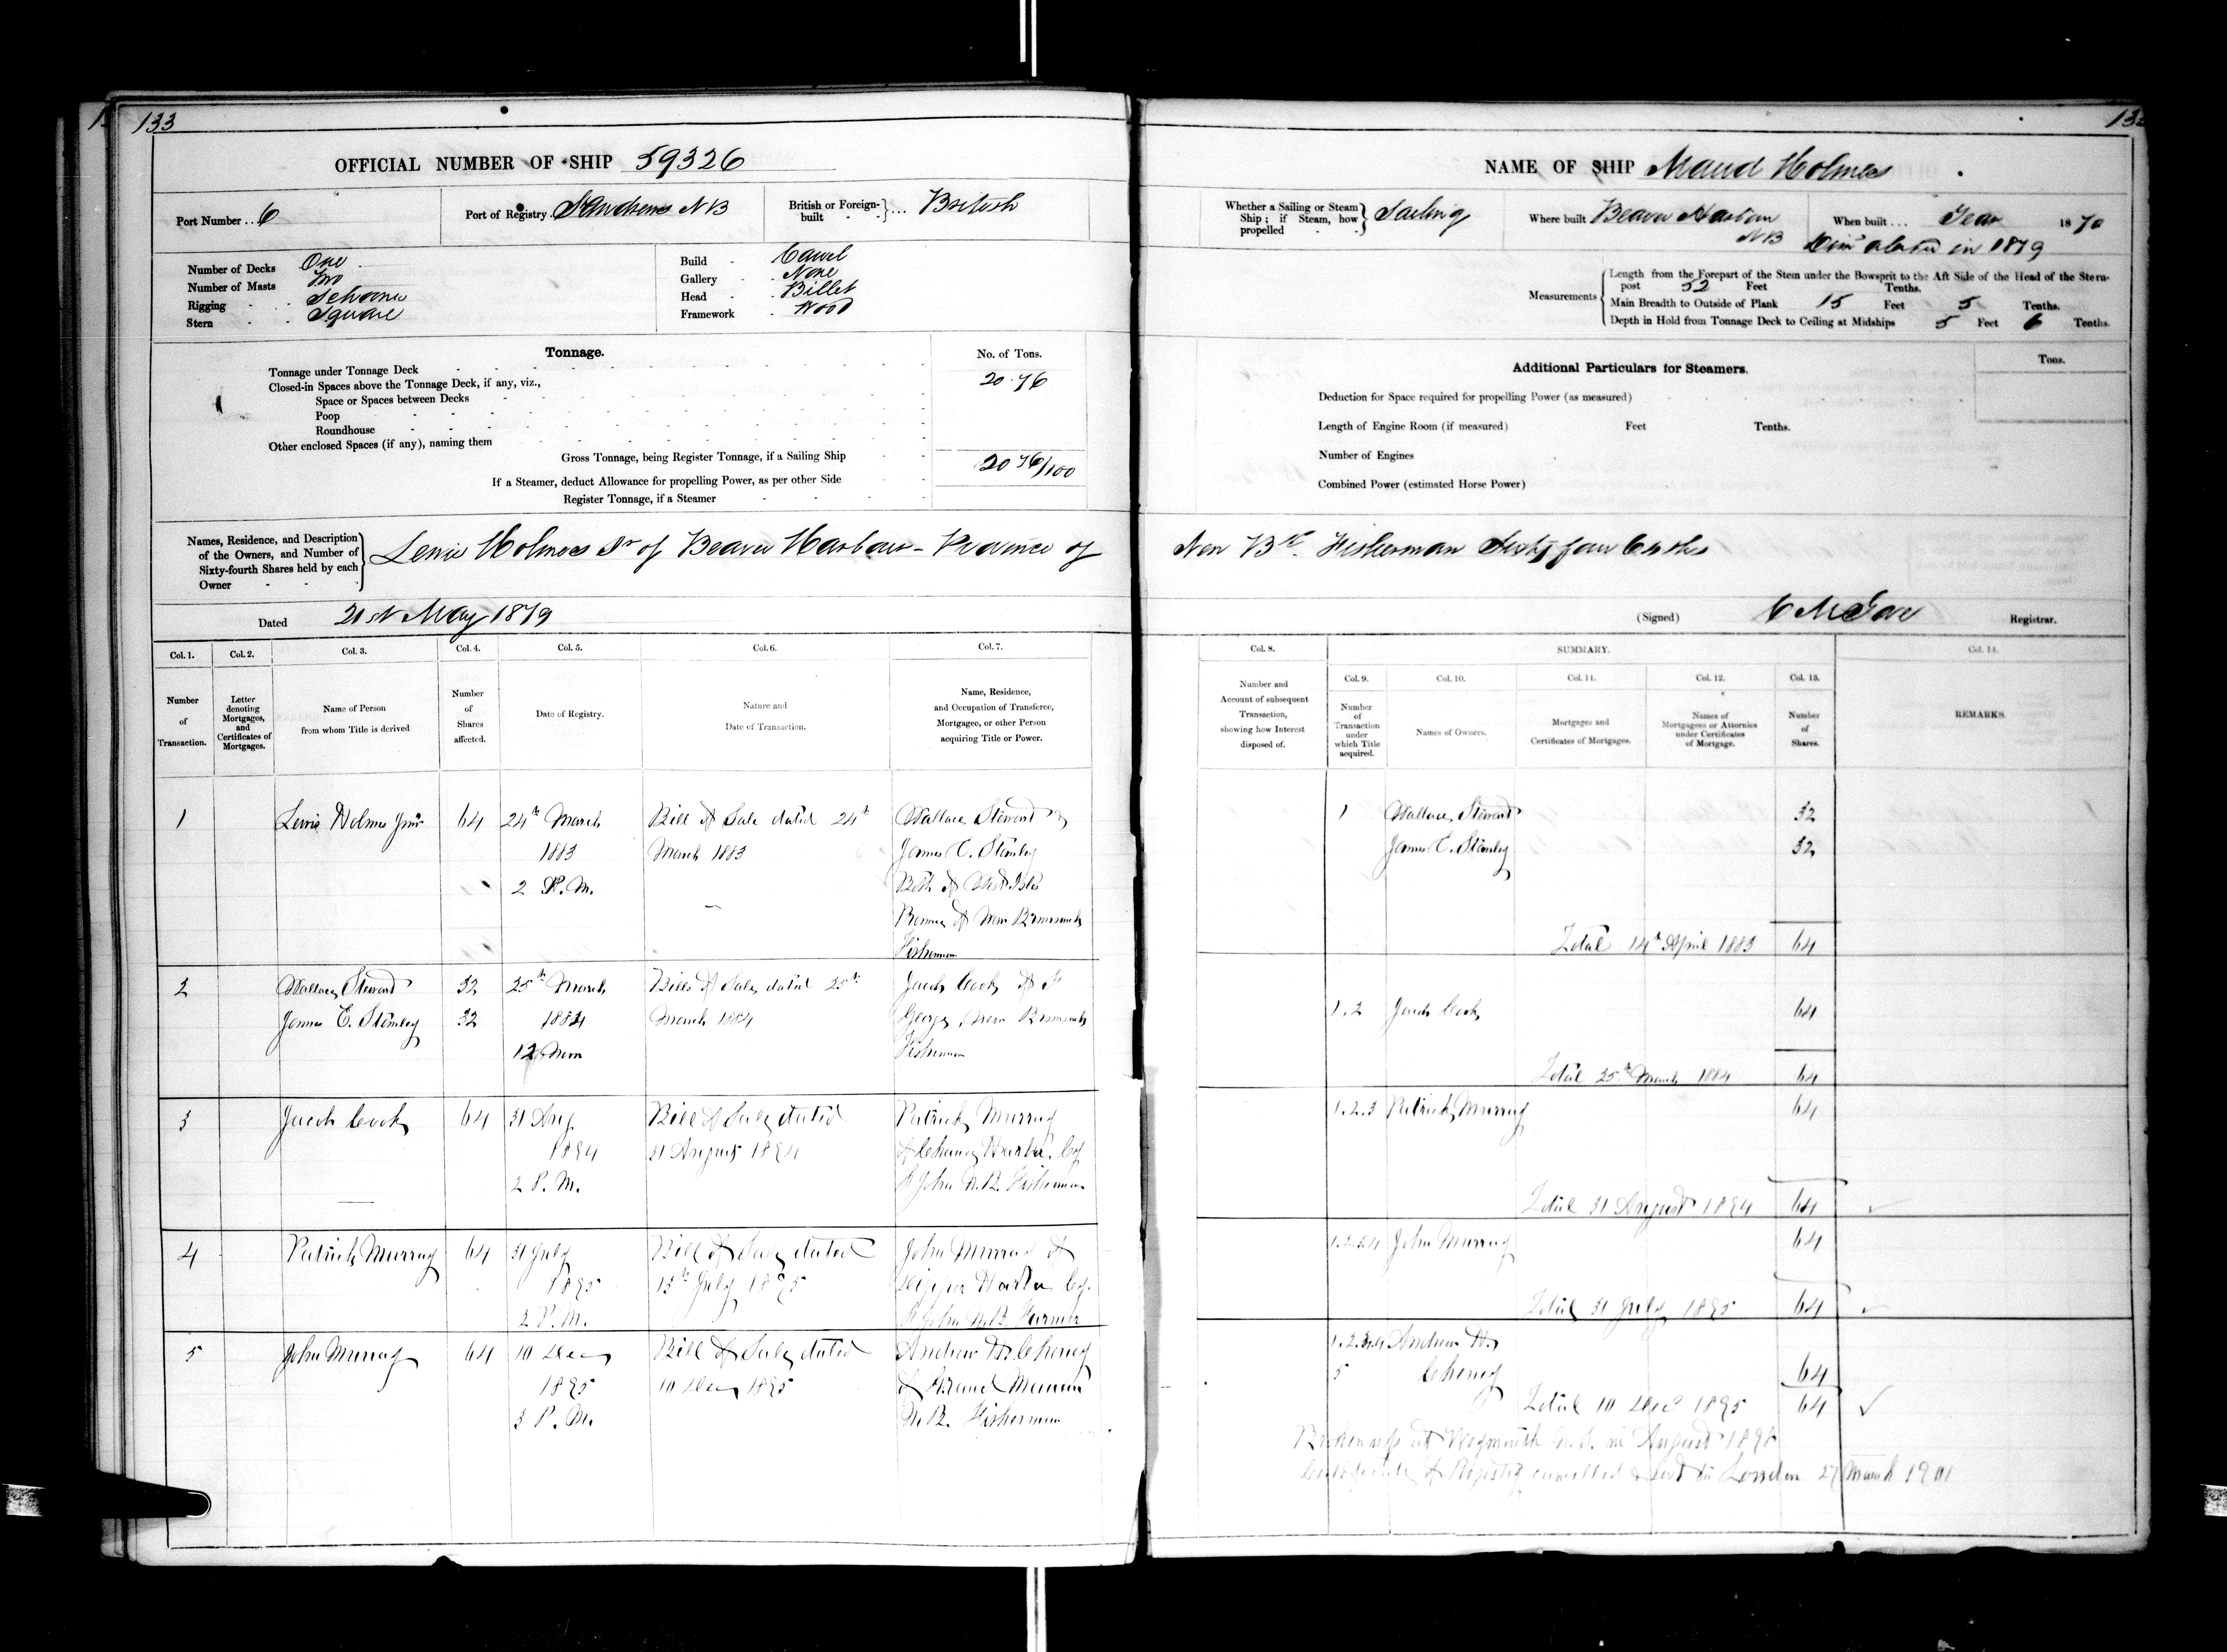 133
OFFICIAL NUMBER OF SHIP 59326
Port Number .. 6
Port of Registry St Andrews NB
British or Foreign-built } ... British
Number of Decks One
Number of Masts Two
Rigging Schooner
Stern Square
Build Carvel
Gallery None
Head Billet
Framework Wood
Tonnage.
No. of Tons.
Tonnage under Tonnage Deck 20.76
Closed-in Spaces above the Tonnage Deck, if any, viz.,
Space or Spaces between Decks
Poop
Roundhouse
Other enclosed Spaces (if any), naming them
Gross Tonnage, being Register Tonnage, if a Sailing Ship 20 76/100
If a Steamer, deduct Allowance for propelling Power, as per other Side
Register Tonnage, if a Steamer
Names, Residence, and Description
of the Owners, and Number of
Sixty-fourth Shares held by each
Owner
Lewis Holmes Jr of Beaver Harbour - Province of
Dated 21st May 1879
Col. 1. Col. 2. Col. 3. Col. 4. Col. 5. Col. 6. Col. 7.
Number of Transaction.
Letter denoting Mortgages, and Certificates of Mortgages.
Name of Person from whom Title is derived
Number of Shares affected.
Date of Registry.
Nature and Date of Transaction.
Name, Residence, and Occupation of Transferee, Mortgagee, or other Person acquiring Title or Power.
1 Lewis Holmes Junr 64 24th March Bill of Sale dated 24th Wallace Steward &
1883 March 1883 James E. Stanley
2 P.M. Both of West Isles
Province of New Brunswick
Fishermen
2 Wallace Steward 32 25th March Bills of Sale dated 25th Jacob Cook of St
James E. Stanley 32 1884 March 1884 George New Brunswick
12 Noon Fisherman
3 Jacob Cook 64 31 Aug Bill of Sale dated Patrick Murray
1894 31 August 1894 of Chance Harbor, Co
2 P.M. St John N.B. Fisherman
4 Patrick Murray 64 31 July Bill of Sale dated John Murray of
1895 15th July 1895 Dipper Harbor Co.
2 P.M. St John N.B. Farmer
5 John Murray 64 10 Dec Bill of Sale dated Andrew H. Cheney
1895 10 Dec 1895 of Grand Manan
3 P.M. N.B. Fisherman
NAME OF SHIP Maud Holmes
Whether a Sailing or Steam
Ship; if Steam, how
propelled
Sailing
Where built Beaver Harbour
NB
When built ... Year 1870
altered in 1879
Measurements
Length from the Forepart of the Stem under the Bowsprit to the Aft Side of the Head of the Stern-
post 52 Feet Tenths.
Main Breadth to Outside of Plank 15 Feet 5 Tenths.
Depth in Hold from Tonnage Deck to Ceiling at Midships 5 Feet 6 Tenths.
Additional Particulars for Steamers.
Tons.
Deduction for Space required for propelling Power (as measured)
Length of Engine Room (if measured) Feet Tenths.
Number of Engines
Combined Power (estimated Horse Power)
New Bk. Fisherman Sixty four 64ths
(Signed) Registrar.
Col. 8. SUMMARY. Col. 14.
Col. 9. Col. 10. Col. 11. Col. 12. Col. 13.
Number and Account of subsequent Transaction, showing how Interest disposed of.
Number of Transaction under which Title acquired.
Names of Owners.
Mortgages and Certificates of Mortgages.
Names of Mortgagees or Attornies under Certificates of Mortgage.
Number of Shares.
REMARKS.
1 Wallace Steward 32
James E. Stanley 32
Total 14th April 1883 64
1.2 Jacob Cook 64
Total 25th March 1884 64
1.2.3 Patrick Murray 64
Total 31 August 1894 64
1.2.3.4 John Murray 64
Total 31 July 1895 64
1.2.3.4 Andrew H.
5 Cheney 64
Total 10 Dec 1895 64
Broken up at Weymouth N.S. in August 1898
Certificate of Registry cancelled & sent to London 27 March 1901